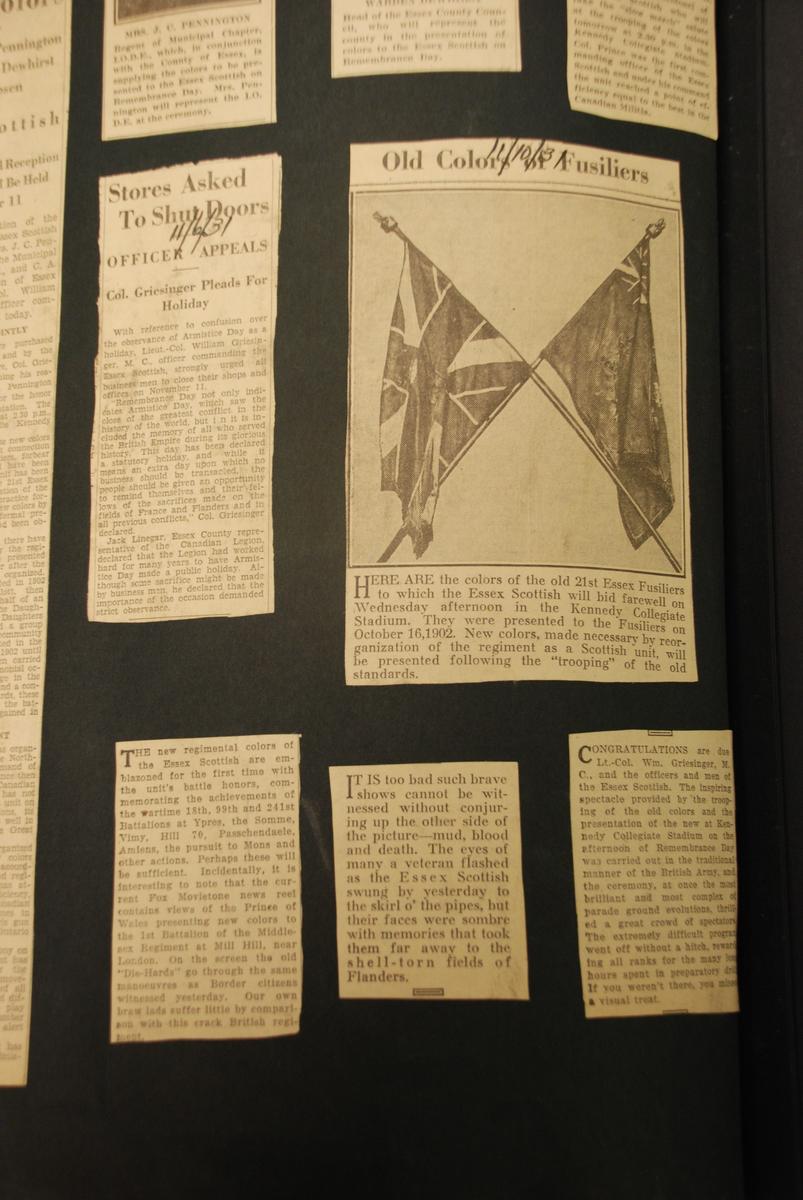 Pennington
Dewhirst
ottish
Reception
Be Held
11
MRS. J. C. PENNINGTON
Regent of Municipal Chapter,
I.O.D.E., which, in conjunction
with the County of Essex, is
supplying the colors to be pre-
sented to the Essex Scottish on
Remembrance Day. Mrs. Pen-
nington will represent the I.O.
D.E. at the ceremony.
Head of the Essex County Coun-
cil, who will represent the
county in the presentation of
colors to the Essex Scottish on
Remembrance Day.
at the trooping of the colors
tomorrow at 2.30 p.m. in the
Kennedy Collegiate Stadium.
Col. Prince was the first com-
manding officer of the Essex
Scottish and under his command
the unit reached a point of ef-
ficiency equal to the best in the
Canadian Militia.
Stores Asked
To Shut Doors
11/6/31
OFFICER APPEALS
Col. Griesinger Pleads For
Holiday
With reference to confusion over
the observance of Armistice Day as a
holiday, Lieut.-Col. William Griesin-
ger, M. C., officer commanding the
Essex Scottish, strongly urged all
business men to close their shops and
offices on November 11.
"Remembrance Day not only indi-
cates Armistice Day, which saw the
close of the greatest conflict in the
history of the world, but in it is in-
cluded the memory of all who served
the British Empire during its glorious
history. This day has been declared
a statutory holiday, and while it
means an extra day upon which no
business should be transacted, the
people should be given an opportunity
to remind themselves and their fel-
lows of the sacrifices made on the
fields of France and Flanders and in
all previous conflicts," Col. Griesinger
declared.
Jack Linegar, Essex County repre-
sentative of the Canadian Legion,
declared that the Legion had worked
hard for many years to have Armis-
tice Day made a public holiday. Al-
though some sacrifice might be made
by business men, he declared that the
importance of the occasion demanded
strict observance.
Old Colors of Fusiliers
11/10/31
HERE ARE the colors of the old 21st Essex Fusiliers
to which the Essex Scottish will bid farewell on
Wednesday afternoon in the Kennedy Collegiate
Stadium. They were presented to the Fusiliers on
October 16,1902. New colors, made necessary by reor-
ganization of the regiment as a Scottish unit, will
be presented following the "trooping" of the old
standards.
THE new regimental colors of
the Essex Scottish are em-
blazoned for the first time with
the unit's battle honors, com-
memorating the achievements of
the wartime 18th, 99th and 241st
Battalions at Ypres, the Somme,
Vimy, Hill 70, Passchendaele,
Amiens, the pursuit to Mons and
other actions. Perhaps these will
be sufficient. Incidentally, it is
interesting to note that the cur-
rent Fox Movietone news reel
contains views of the Prince of
Wales presenting new colors to
the 1st Battalion of the Middle-
sex Regiment at Mill Hill, near
London. On the screen the old
"Die-Hards" go through the same
manoeuvres as Border citizens
witnessed yesterday. Our own
braw lads suffer little by compari-
son with this crack British regi-
ment.
IT IS too bad such brave
shows cannot be wit-
nessed without conjur-
ing up the other side of
the picture—mud, blood
and death. The eyes of
many a veteran flashed
as the Essex Scottish
swung by yesterday to
the skirl o' the pipes, but
their faces were sombre
with memories that took
them far away to the
shell-torn fields of
Flanders.
CONGRATULATIONS are due
Lt.-Col. Wm. Griesinger, M.
C., and the officers and men of
the Essex Scottish. The inspiring
spectacle provided by the troop-
ing of the old colors and the
presentation of the new at Ken-
nedy Collegiate Stadium on the
afternoon of Remembrance Day
was carried out in the traditional
manner of the British Army, and
the ceremony, at once the most
brilliant and most complex of
parade ground evolutions, thrill-
ed a great crowd of spectators.
The extremely difficult program
went off without a hitch, reward-
ing all ranks for the many long
hours spent in preparatory drill
If you weren't there, you missed
a visual treat.